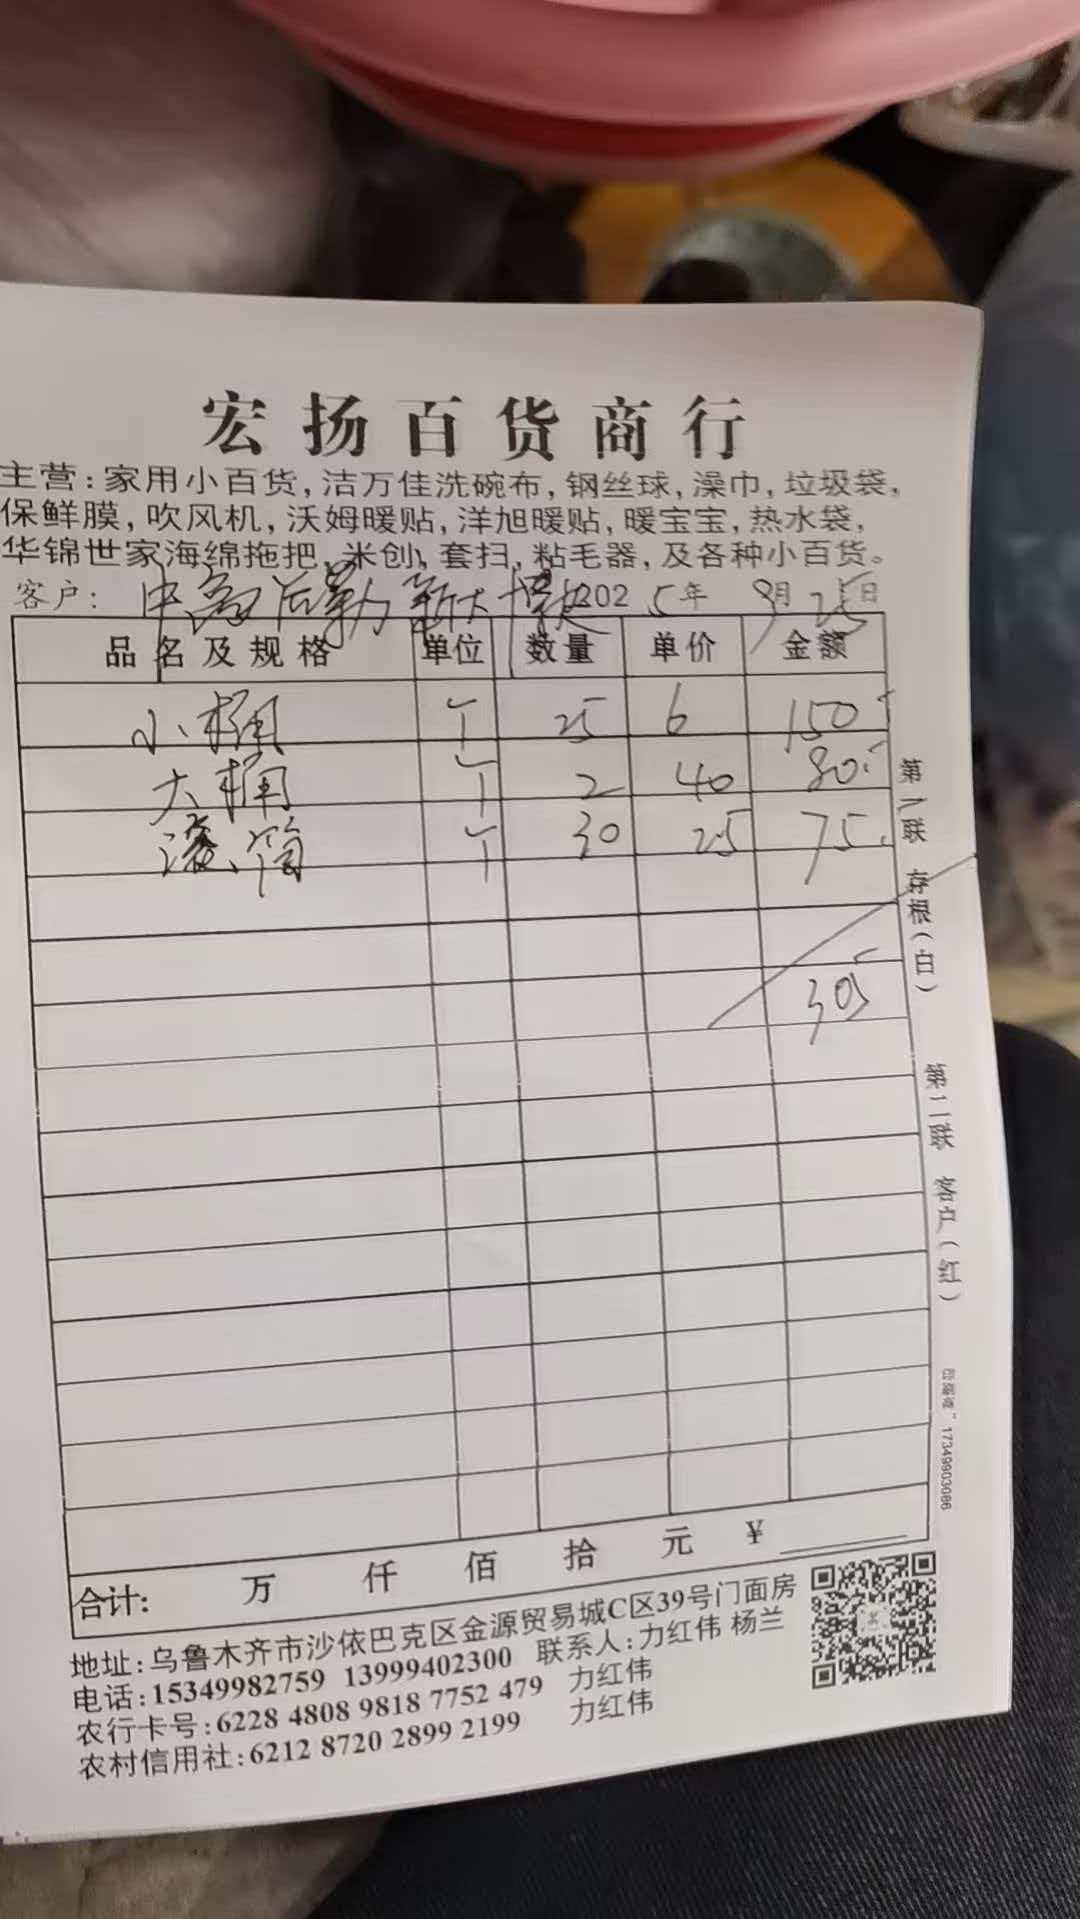 宏扬百货商行
主营:家用小百货,洁万佳洗碗布,钢丝球,澡巾,垃圾袋,
保鲜膜,吹风机,沃姆暖贴,洋旭暖贴,暖宝宝,热水袋,
华锦世家海绵拖把,米创,套扫,粘毛器,及各种小百货。
客户: 后勤 2025年 9月25日
品名及规格 单位 数量 单价 金额
小桶 个 25 6 150
大桶 个 2 40 80
滚筒 个 30 25 75
305
合计: 万 仟 佰 拾 元 ¥
地址:乌鲁木齐市沙依巴克区金源贸易城C区39号门面房
电话:15349982759 13999402300 联系人:力红伟 杨兰
农行卡号:6228 4808 9818 7752 479 力红伟
农村信用社:6212 8720 2899 2199 力红伟
第一联 存根(白) 第二联 客户(红)
17349903086